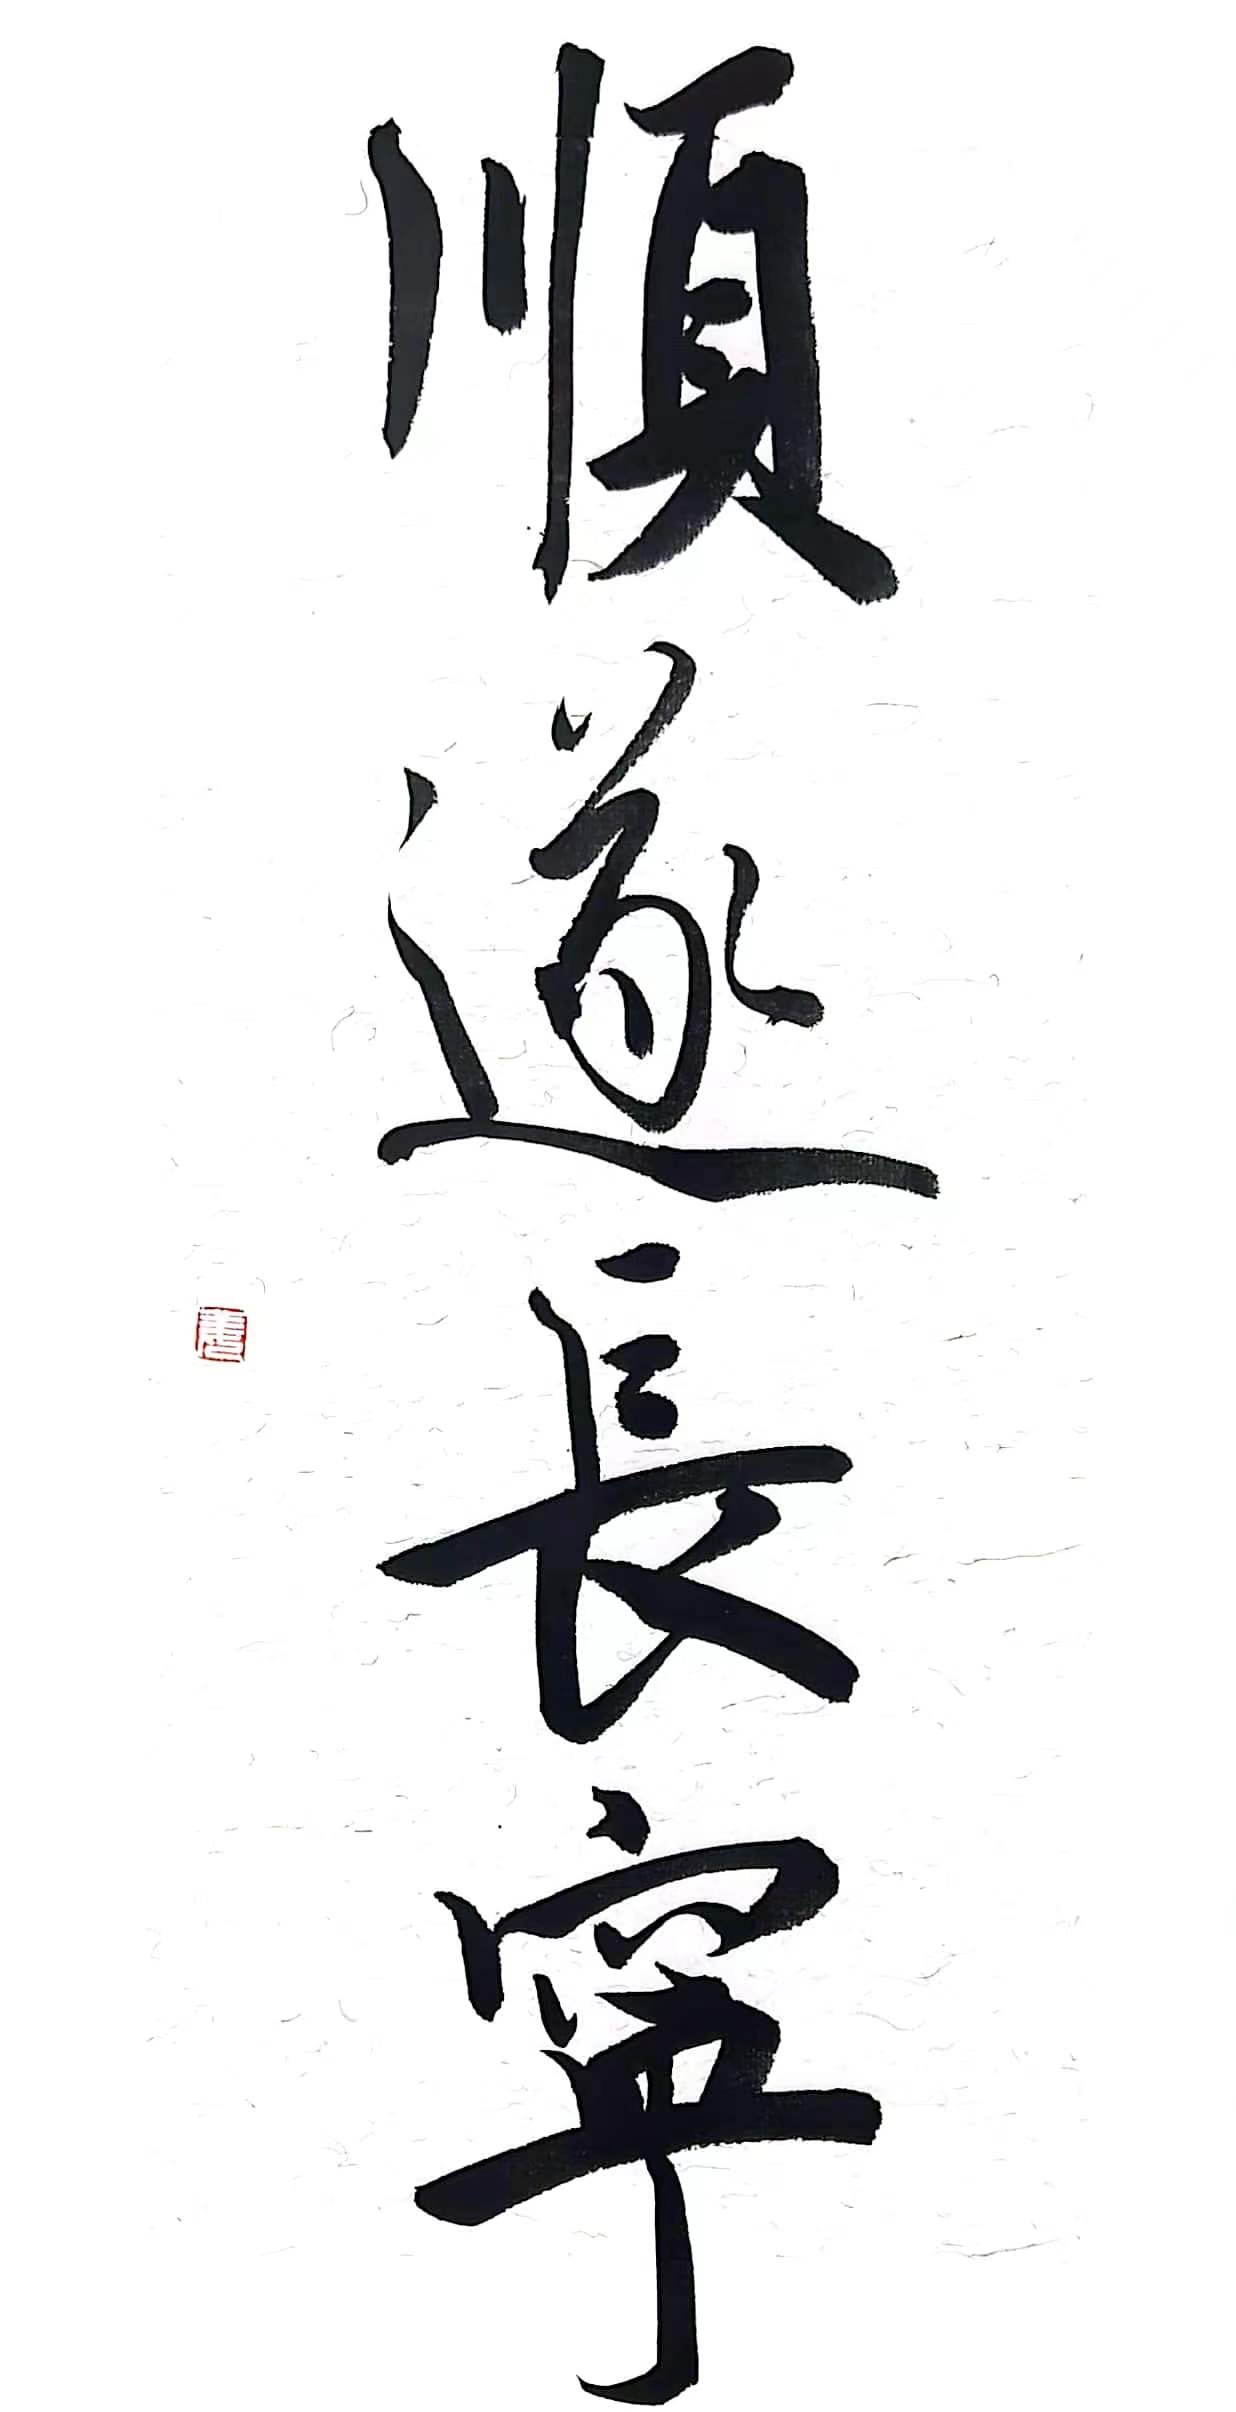 順遂長寧